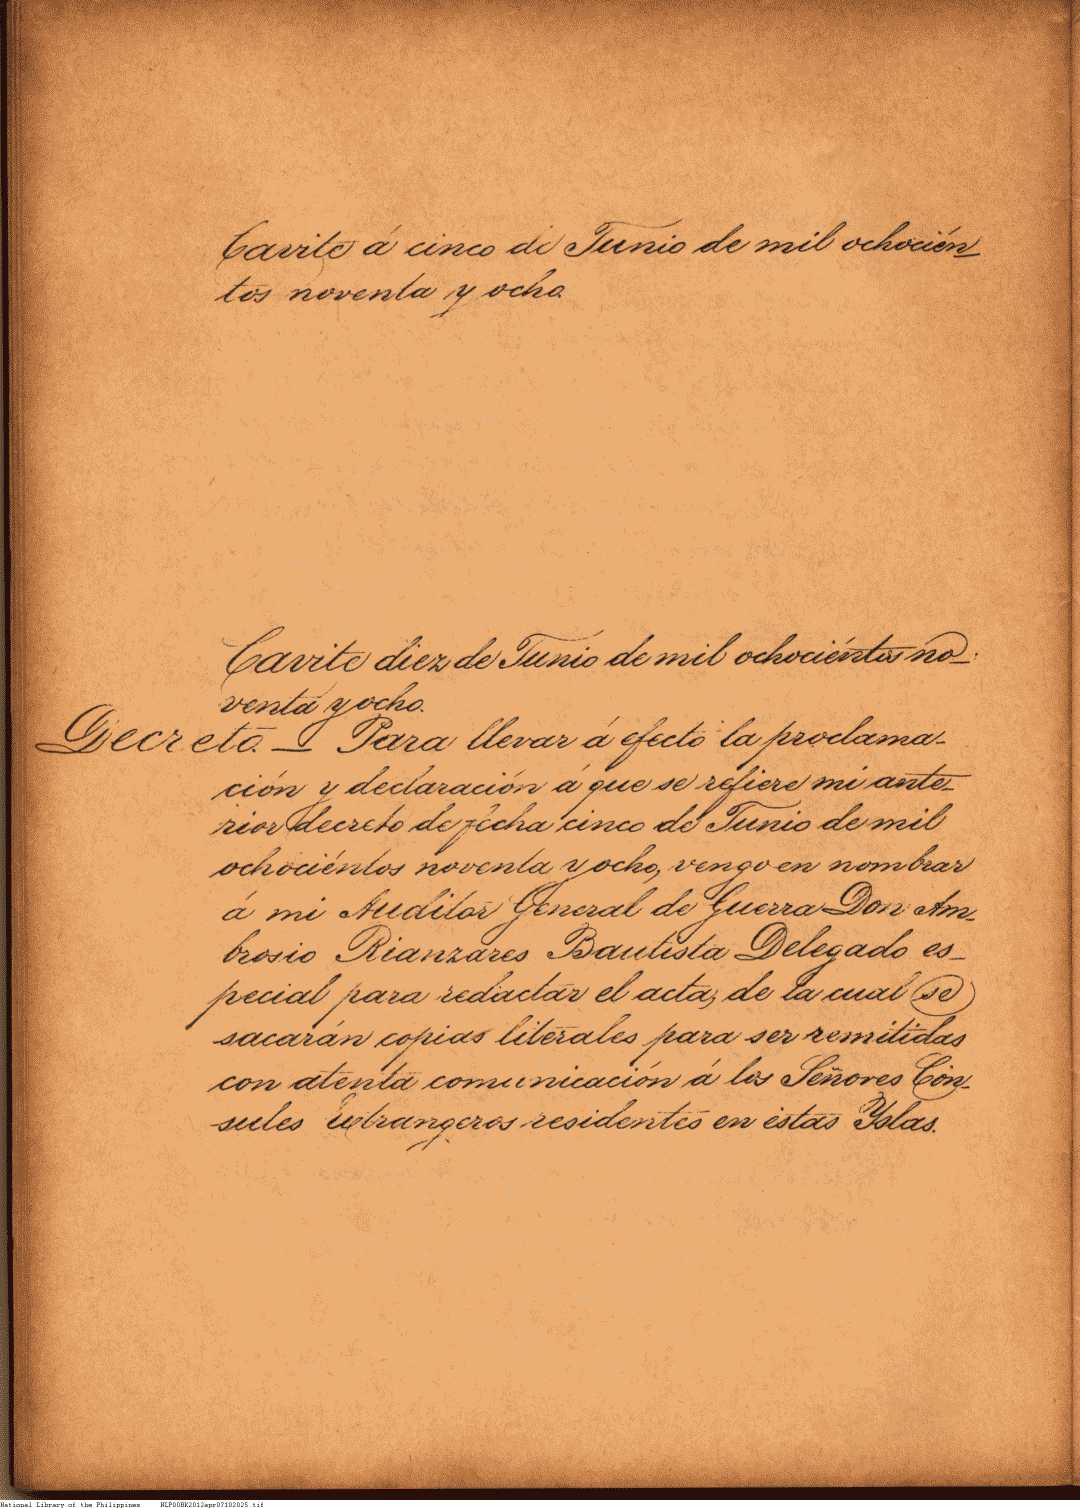 Cavite á cinco de Junio de mil ochocién
tos noventa y ocho.
Cavite diez de Junio de mil ochociéntos no-
venta y ocho.
Decreto. — Para llevar á efecto la proclama-
ción y declaración á que se refiere mi ante-
rior decreto de fecha cinco de Junio de mil
ochociéntos noventa y ocho, vengo en nombrar
á mi Auditor General de Guerra Don Am-
brosio Rianzares Bautista Delegado es-
pecial para redactar el acta, de la cual se
sacarán copias literales para ser remitidas
con atenta comunicación á los Señores Cón-
sules extrangeros residentes en éstas Yslas.
National Library of the Philippines NLP00BK2012apr07102025.tif